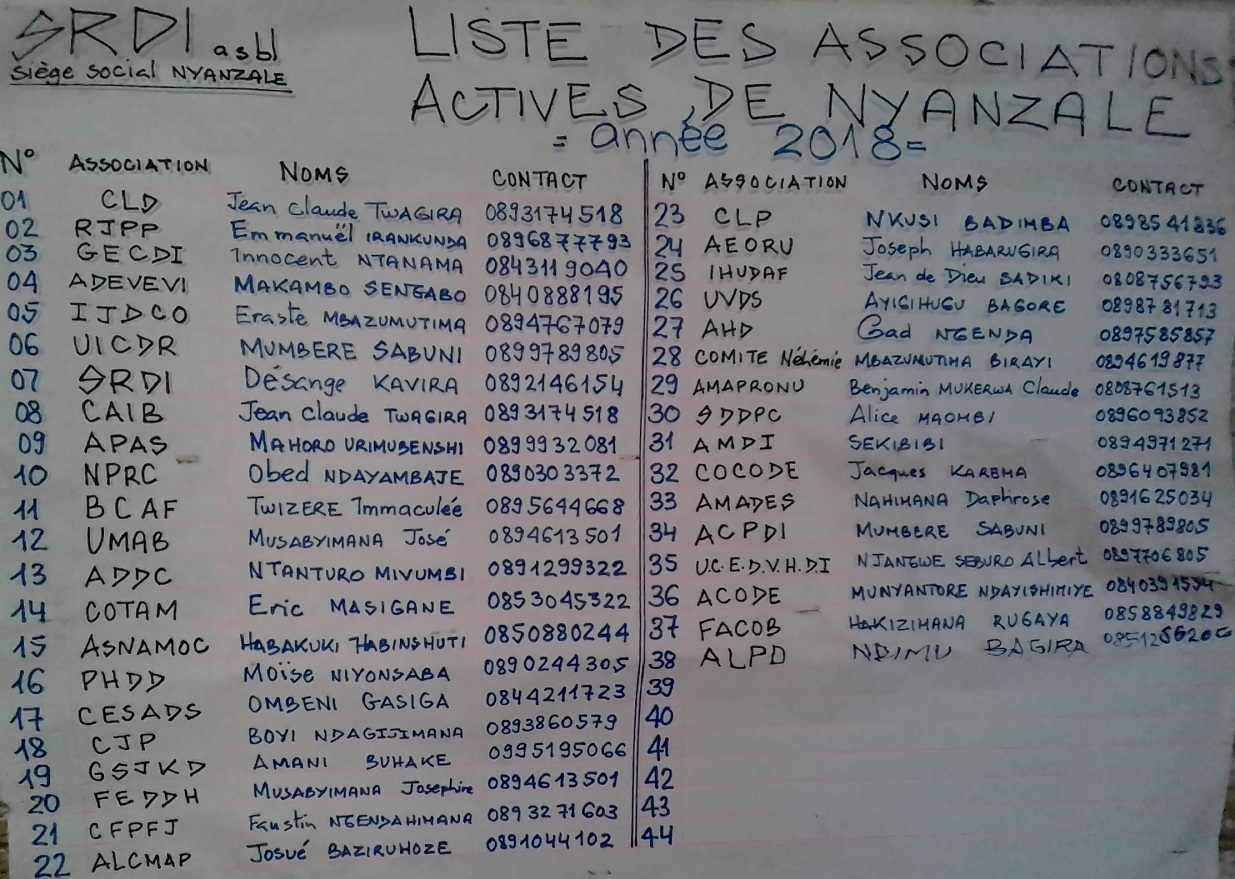 SRDI asbl
Siège social NYANZALE
LISTE DES ASSOCIATIONS
ACTIVES DE NYANZALE
= année 2018=
N° ASSOCIATION NOMS CONTACT
01 CLD Jean Claude TWAGIRA 0893174518
02 RJPP Emmanuël IRANKUNDA 0896877793
03 GECDI Innocent NTANAMA 0843119040
04 ADEVEVI MAKAMBO SENGABO 0840888195
05 IJDCO Eraste MBAZUMUTIMA 0894767079
06 UICDR MUMBERE SABUNI 0899789805
07 SRDI Désange KAVIRA 0892146154
08 CAIB Jean Claude TWAGIRA 0893174518
09 APAS MAHORO URIMUBENSHI 0899932081
10 NPRC Obed NDAYAMBAJE 0890303372
11 BCAF TWIZERE Immaculée 0895644668
12 UMAB MUSABYIMANA José 0894613501
13 ADDC NTANTURO MIVUMBI 0891299322
14 COTAM Eric MASIGANE 0853045322
15 ASNAMOC HABAKUKI HABINSHUTI 0850880244
16 PHDD Moïse NIYONSABA 0890244305
17 CESADS OMBENI GASIGA 0844211723
18 CJP BOYI NDAGIJIMANA 0893860579
19 GSJKD AMANI BUHAKE 0995195066
20 FEDDH MUSABYIMANA Josephine 0894613501
21 CFPFJ Faustin NGENDAHIMANA 0893271603
22 ALCMAP Josué BAZIRUHOZE 0891044102
N° ASSOCIATION NOMS CONTACT
23 CLP NKUSI BADIMBA 0898541836
24 AEORU Joseph HABARUGIRA 0890333651
25 IHUDAF Jean de Dieu SADIKI 0808756793
26 UVDS AYIGIHUGU BAGORE 0898781713
27 AHD Gad NGENDA 0897585857
28 COMITE Néhémie MBAZUMUTIMA BIRAYI 0894619877
29 AMAPRONU Benjamin MUKERWA Claude 0808761513
30 SDDPC Alice MAOMBI 0896093852
31 AMDI SEKIBIBI 0894971271
32 COCODE Jacques KAREMA 0896407981
33 AMADES NAHIMANA Daphrose 0891625034
34 ACPDI MUMBERE SABUNI 0899789805
35 U.C.E.D.V.H.D.I NJANGWE SEBURO Albert 0897706805
36 ACODE MUNYANTORE NDAYISHIMIYE
37 FACOB HAKIZIMANA RUGAYA 0858849829
38 ALPD NDIMU BAGIRA
39
40
41
42
43
44